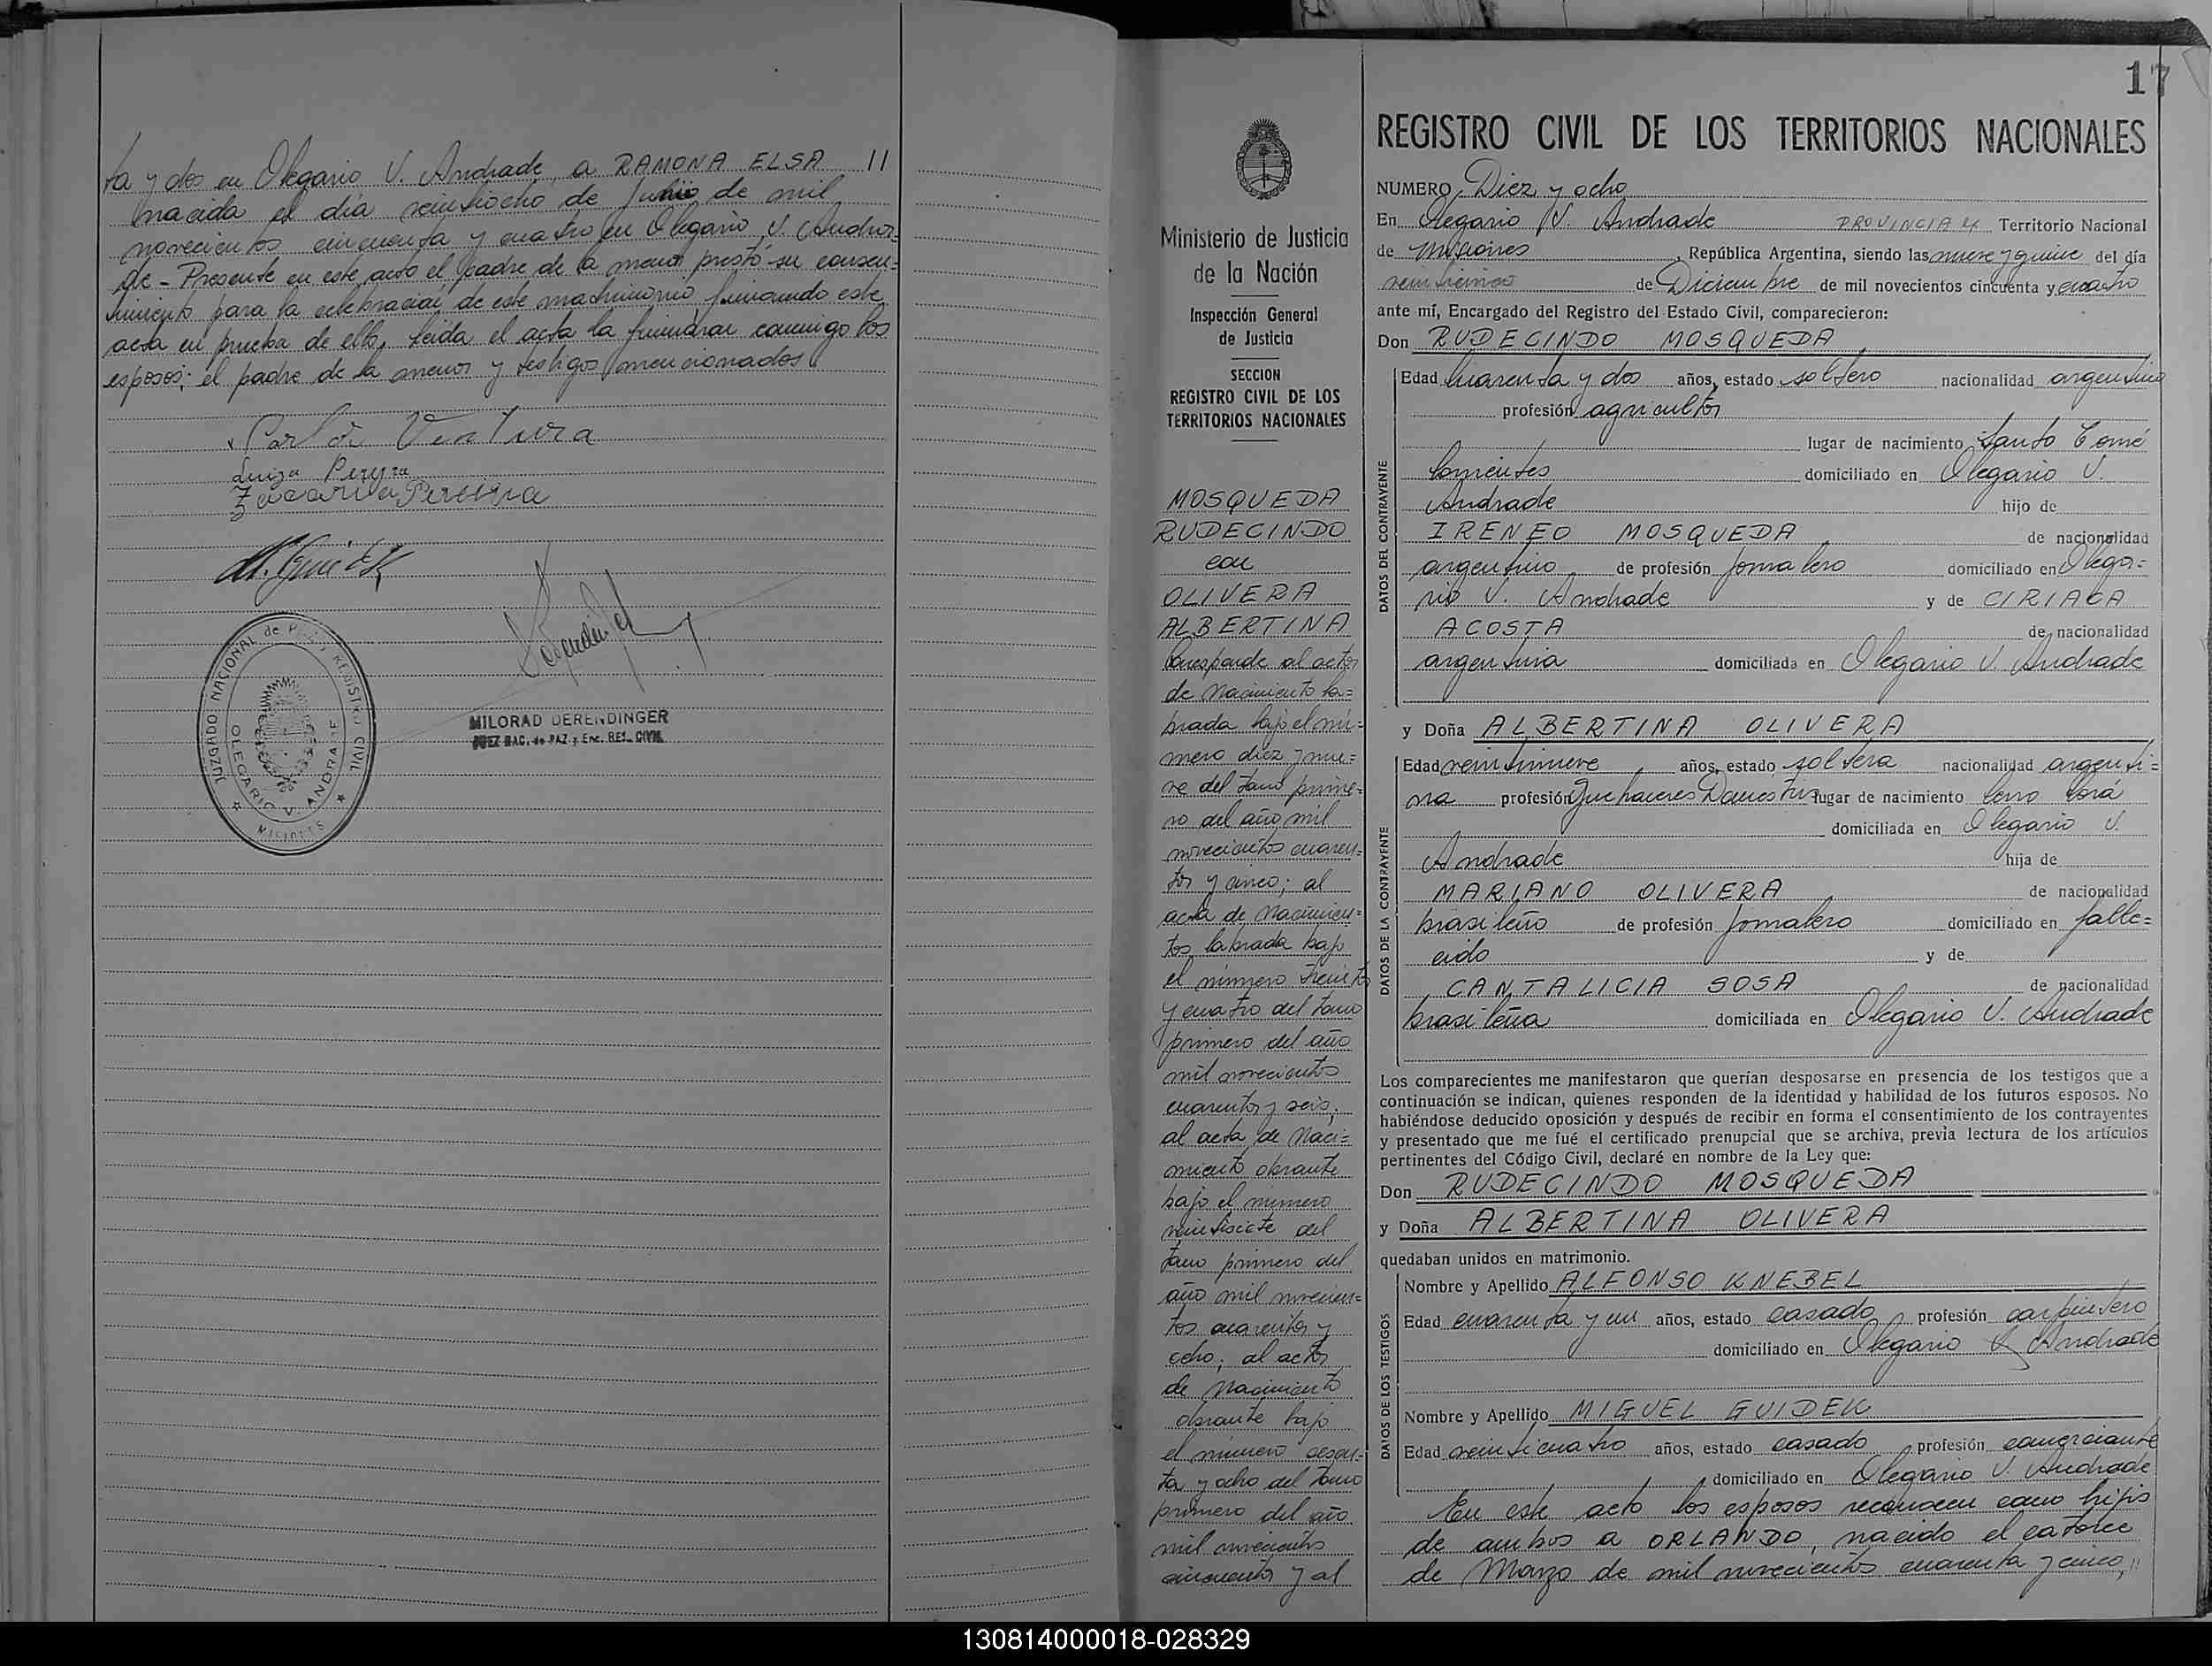 ta y dos en Olegario V. Andrade, a RAMONA ELSA 11
nacida el día veintiocho de Junio de mil
novecientos cincuenta y cuatro en Olegario V. Andra=
de - Presente en este acto el padre de la menor prestó su consen=
timiento para la celebración de este matrimonio firmando este
acta en prueba de ello, leida el acta la firmaron conmigo los
esposos; el padre de la menor y testigos mencionados
Carlos Ventura
Luiza Pereyra
Zacaria Pereyra
JUZGADO NACIONAL de PAZ y REGISTRO CIVIL
OLEGARIO V. ANDRADE
MISIONES
MILORAD DERENDINGER
JUEZ NAC. de PAZ y Enc. REG. CIVIL
17
Ministerio de Justicia
de la Nación
Inspección General
de Justicia
SECCION
REGISTRO CIVIL DE LOS
TERRITORIOS NACIONALES
MOSQUEDA
RUDECINDO
con
OLIVERA
ALBERTINA
Corresponde al acta
de Nacimiento la=
brada bajo el nú=
mero diez y nue=
ve del tomo prime=
ro del año mil
novecientos cuaren=
ta y cinco; al
acta de Nacimien=
to labrada bajo
el número treinta
y cuatro del tomo
primero del año
mil novecientos
cuarenta y seis;
al acta de Naci=
miento obrante
bajo el número
veintisiete del
tomo primero del
año mil novecien=
tos cuarenta y
ocho; al acta
de Nacimiento
obrante bajo
el número sesen=
ta y ocho del tomo
primero del año
mil novecientos
cincuenta y al
REGISTRO CIVIL DE LOS TERRITORIOS NACIONALES
NUMERO Diez y ocho
En Olegario V. Andrade PROVINCIA Territorio Nacional
de Misiones, República Argentina, siendo las nueve y quince del día
veinticinco de Diciembre de mil novecientos cincuenta y cuatro
ante mí, Encargado del Registro del Estado Civil, comparecieron:
Don RUDECINDO MOSQUEDA
DATOS DEL CONTRAYENTE
Edad Cuarenta y dos años, estado soltero nacionalidad argentino
profesión agricultor
lugar de nacimiento Santo Tomé
Corrientes domiciliado en Olegario V.
Andrade hijo de
IRENEO MOSQUEDA de nacionalidad
argentino de profesión Jornalero domiciliado en Olega=
rio V. Andrade y de CIRIACA
ACOSTA de nacionalidad
argentina domiciliada en Olegario V. Andrade
y Doña ALBERTINA OLIVERA
DATOS DE LA CONTRAYENTE
Edad veintinueve años, estado soltera nacionalidad argenti=
na profesión Quehaceres Domésticos lugar de nacimiento Cerro Corá
domiciliada en Olegario V.
Andrade hija de
MARIANO OLIVERA de nacionalidad
brasileño de profesión Jornalero domiciliado en falle=
cido y de
CANTALICIA SOSA de nacionalidad
brasileña domiciliada en Olegario V. Andrade
Los comparecientes me manifestaron que querían desposarse en presencia de los testigos que a
continuación se indican, quienes responden de la identidad y habilidad de los futuros esposos. No
habiéndose deducido oposición y después de recibir en forma el consentimiento de los contrayentes
y presentado que me fué el certificado prenupcial que se archiva, previa lectura de los artículos
pertinentes del Código Civil, declaré en nombre de la Ley que:
Don RUDECINDO MOSQUEDA
y Doña ALBERTINA OLIVERA
quedaban unidos en matrimonio.
DATOS DE LOS TESTIGOS
Nombre y Apellido ALFONSO KNEBEL
Edad cuarenta y un años, estado casado profesión carpintero
domiciliado en Olegario V. Andrade
Nombre y Apellido MIGUEL GUIDEK
Edad veinticuatro años, estado casado profesión comerciante
domiciliado en Olegario V. Andrade
En este acto los esposos reconocen como hijos
de ambos a ORLANDO, nacido el catorce
de Marzo de mil novecientos cuarenta y cinco, 11
130814000018-028329